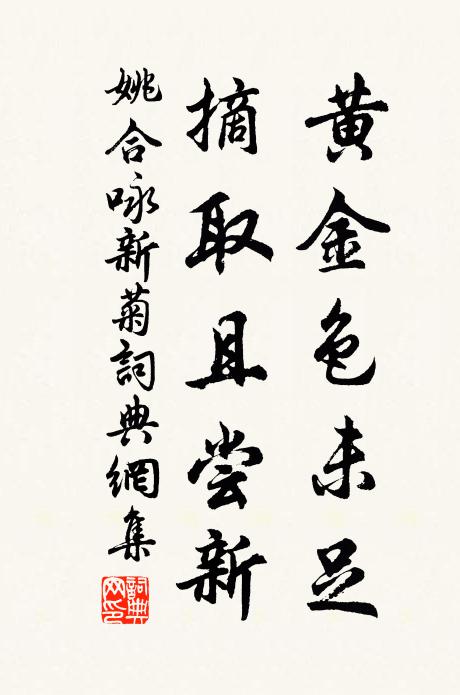 黄金色未足
摘取且尝新
姚合咏新菊詞典網集
詞典网印